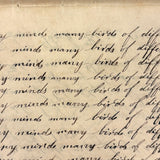 y minds many birds of diff
y minds many birds of diff
y minds many birds of diff
y minds many birds of diff
y minds many birds of diff
y minds many birds of diff
y minds many birds of
y minds many birds of
minds many birds of